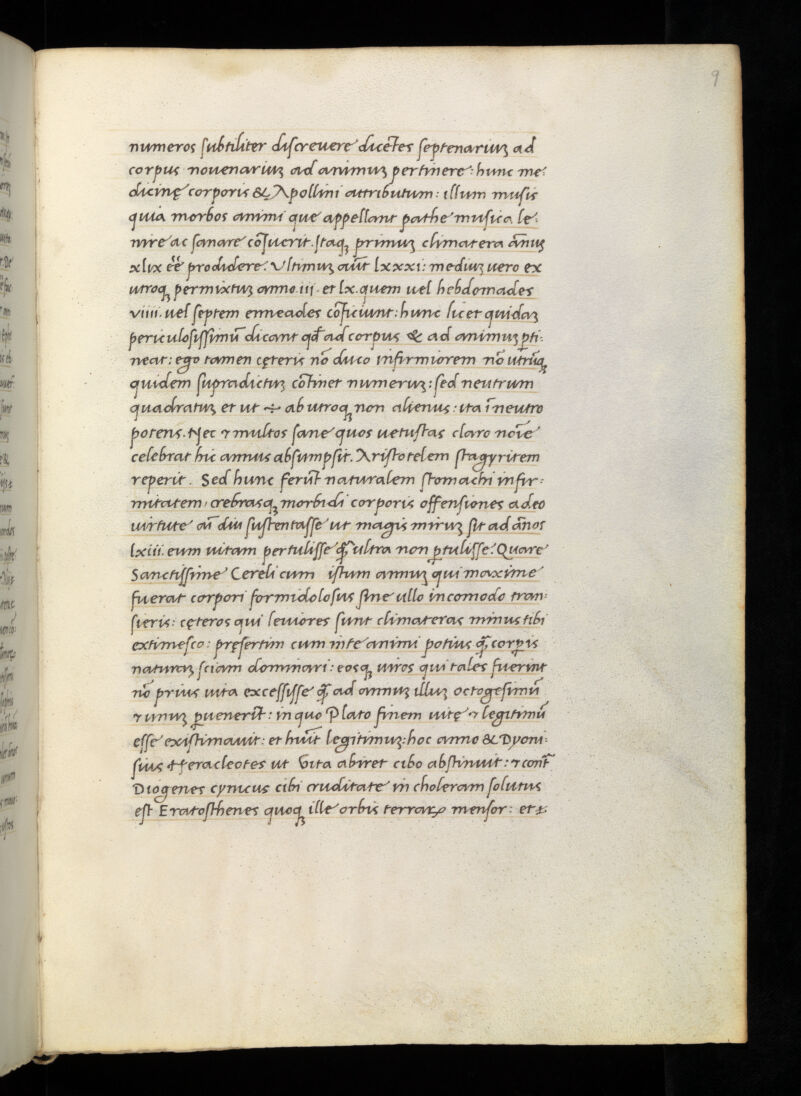 9
numeros subtiliter discreuere dicẽtes septenariuʒ ad
corpus nouenariuʒ ad animuʒ pertinere: hunc me:
dicinę corporis & Apollini attributum: illum musis
quia morbos animi que appellant pathe musica le:
nire ac sanare cõsuerit. Itaqʒ primuʒ climatera ãnuʒ
xlix ẽẽ prodidere. Vltimuʒ aũt lxxxi: mediuʒ uero ex
utroqʒ permixtuʒ anno .iii. et lx. quem uel hebdomades
viiii. uel septem enneades cõficiunt: hunc licet quidaʒ
periculosissimũ dicant qđ ad corpus & ad animuʒ ꝑti:
neat: ego tamen cęteris nõ duco infirmiorem nõ utrũqʒ
quidem supradictuʒ cõtinet numeruʒ: sed neutrum
quadratuʒ et ut ÷ ab utroqʒ non alienus: ita ĩ neutro
potens. Nec ⁊ multos sane quos uetustas claro noĩe
celebrat hic annus absumpsit. Aristotelem stagyritem
reperit. Sed hunc ferũt naturalem stomachi infir:
mitatem, crebrasqʒ morbidi corporis offensiones adeo
uirtute aĩ diu sustentasse ut magis miruʒ sit ad ãnos
lxiii. eum uitam pertulisse q̃ ultra non ꝑtulisse. Quare
Sanctissime Cereli cum istum annuʒ qui maxime
fuerat corpori formidolosus sine ullo incomodo tran:
sieris: cęteros qui leuiores sunt climateras minus tibi
extimesco: pręsertim cum in te animi potius q̃ corꝑis
naturaʒ sciam dominari: eosqʒ uiros qui tales fuerint
nõ prius uita excessisse q̃ ad annuʒ illuʒ octogesimũ
⁊ unuʒ ꝑuenerĩt: in quo Plato finem uitę ⁊ legitimũ
esse existimauit: et hũit legitimuʒ: hoc anno & Dyoni:
sius Heracleotes ut Vita abiret cibo abstinuit: ⁊ cont̃
Diogenes cynicus cibi cruditate in choleram solutus
est Eratosthenes quoqʒ ille orbis terraꝝ mensor: et